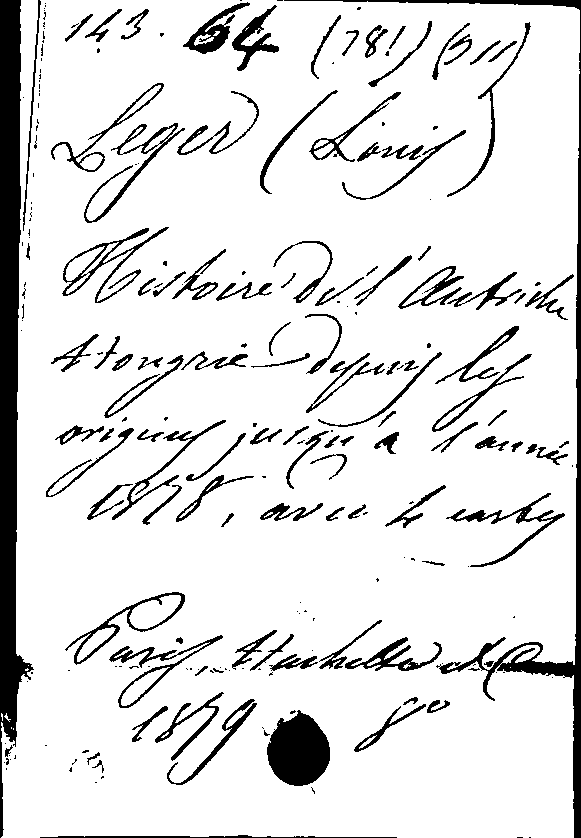 143. 64 (781) (511)
Leger (Louis)
Histoire de l'Autriche
Hongrie depuis les
origines jusqu'à l'année
1878, avec 4 cartes
Paris, Hachette et C
1879 8°